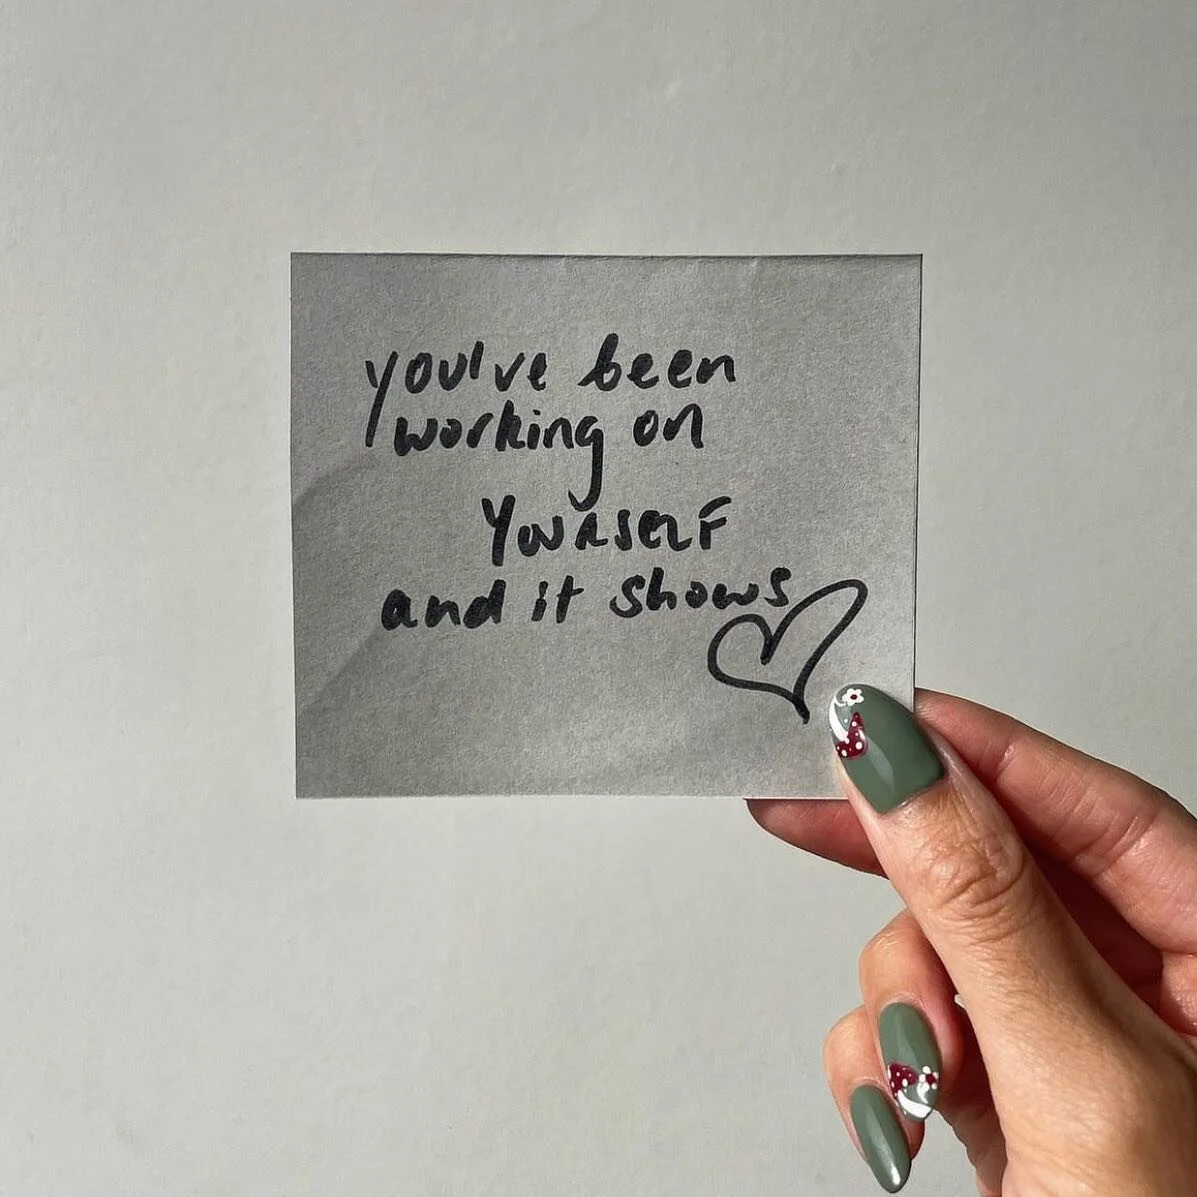 you've been
working on
YOURSELF
and it shows